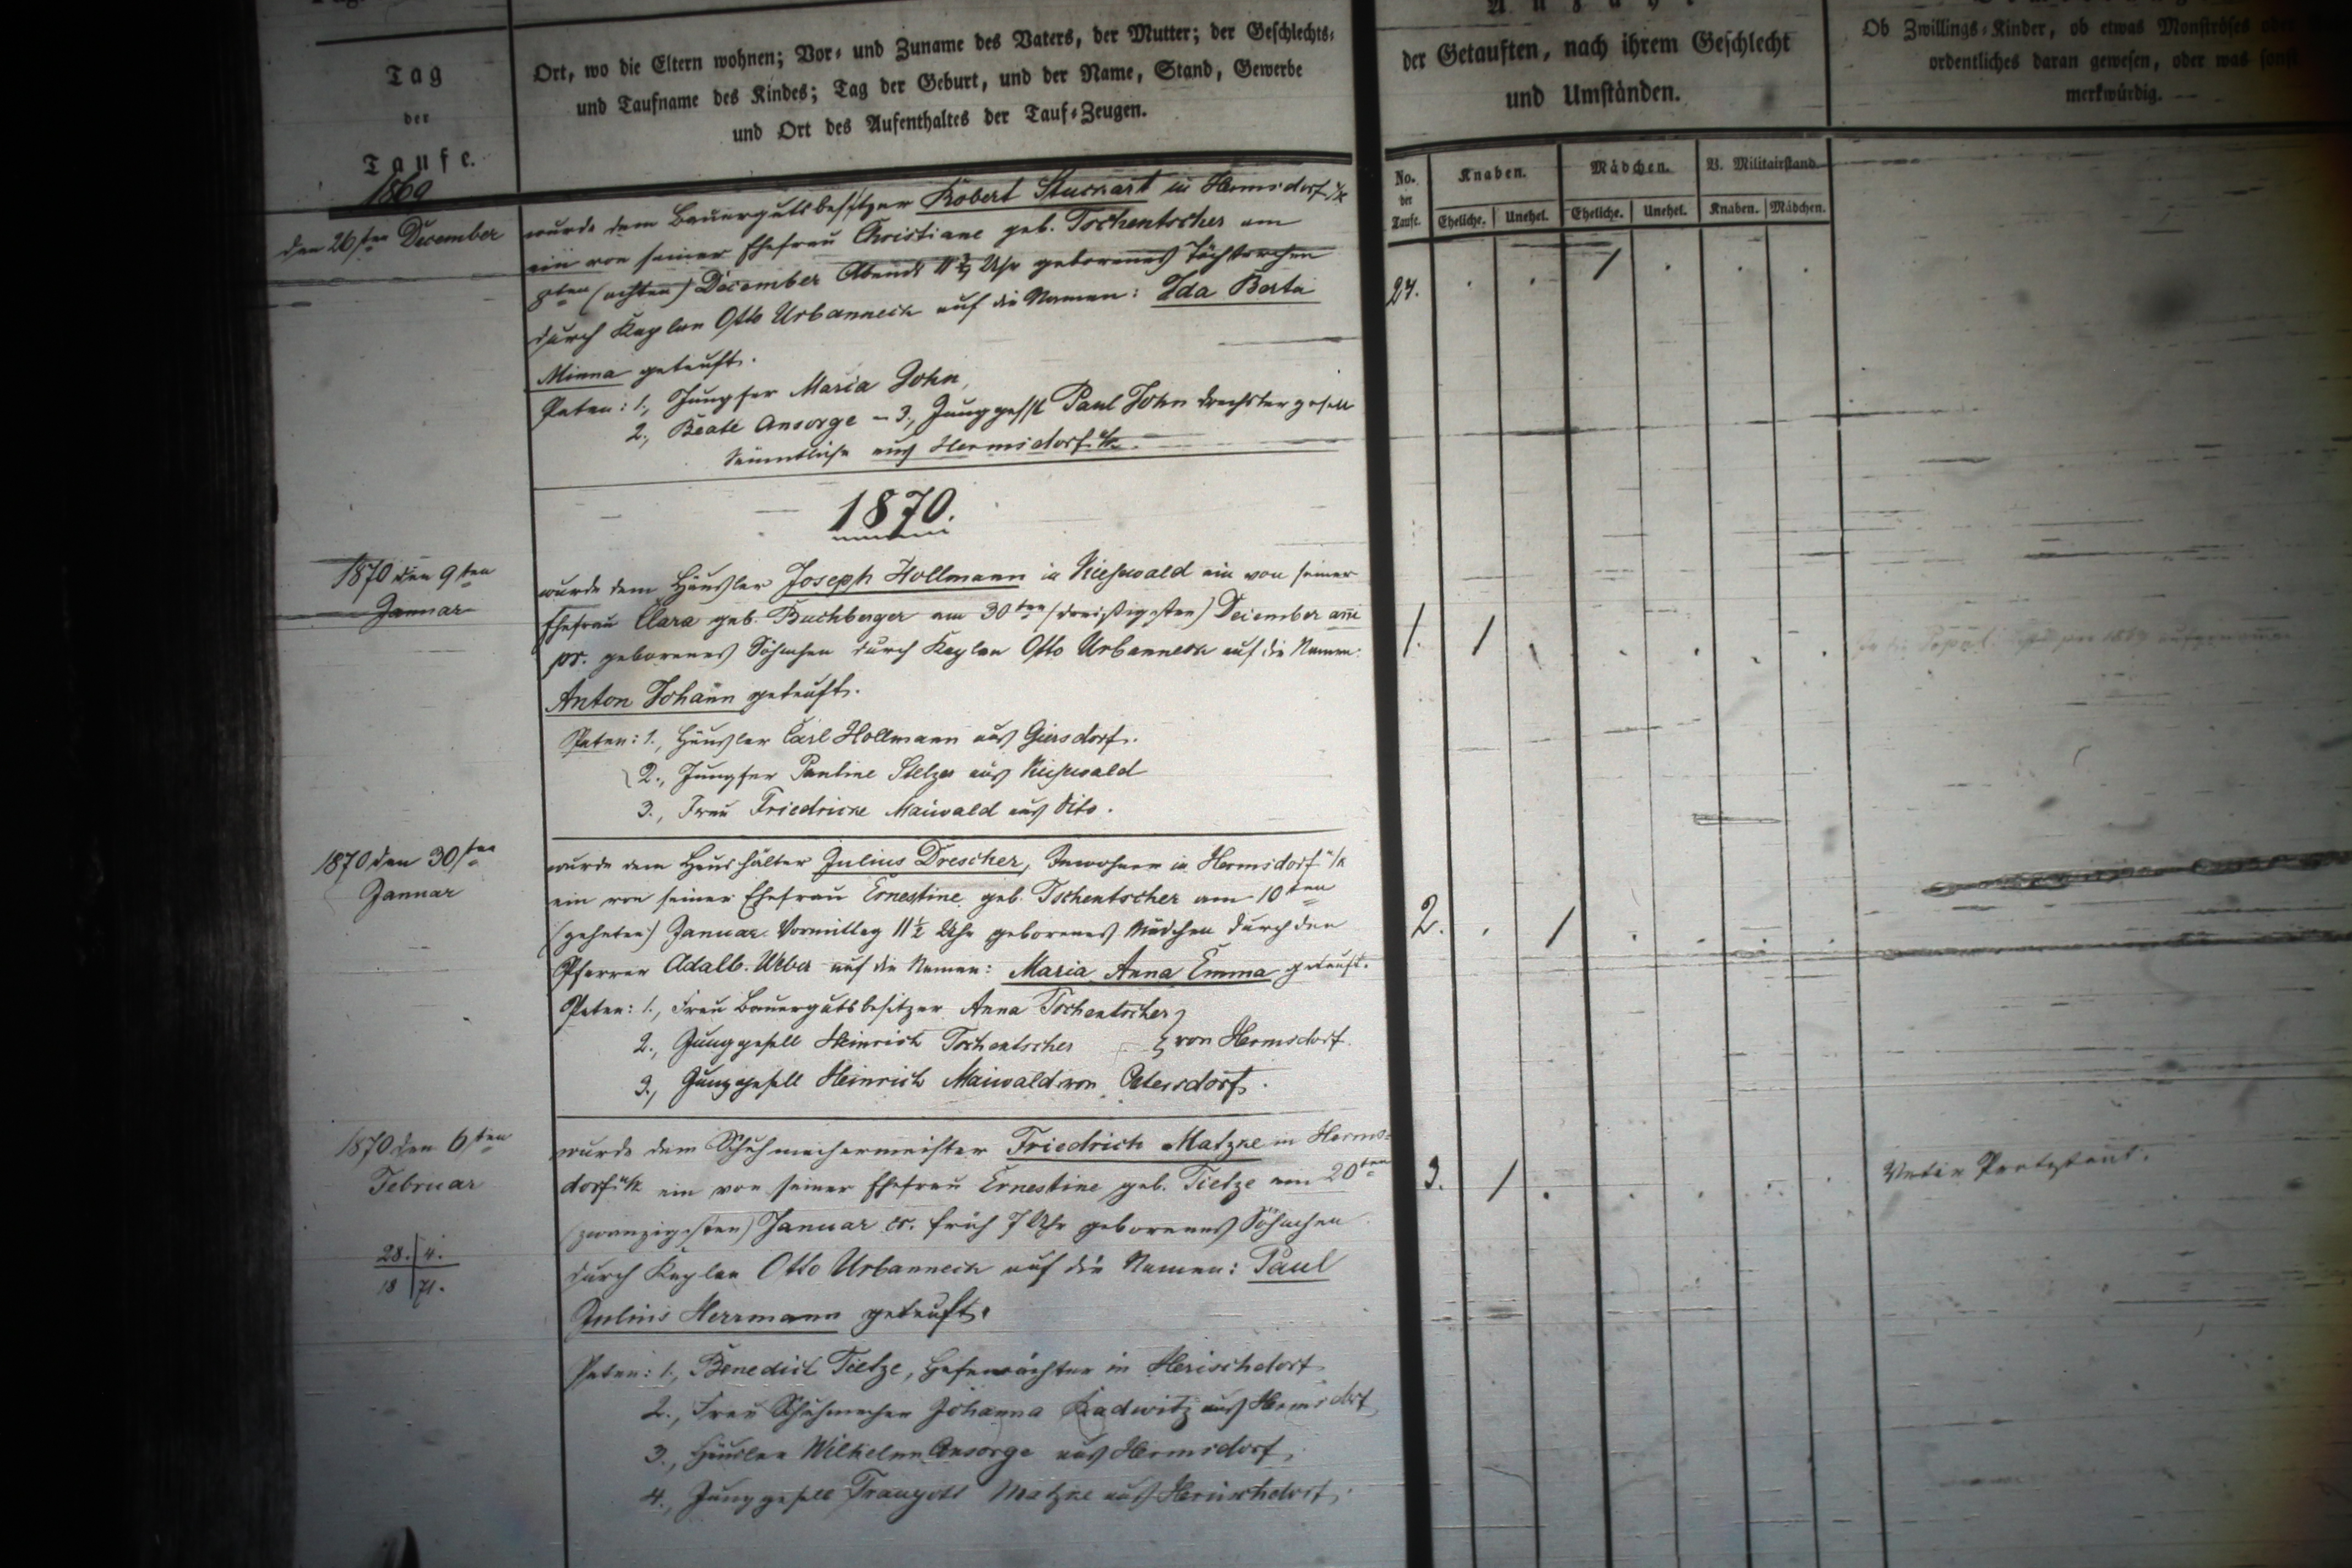 Tag
der
Taufe.
Ort, wo die Eltern wohnen; Vor- und Zuname des Vaters, der Mutter; der Geschlechts-
und Taufname des Kindes; Tag der Geburt, und der Name, Stand, Gewerbe
und Ort des Aufenthaltes der Tauf-Zeugen.
der Getauften, nach ihrem Geschlecht
und Umständen.
Ob Zwillings-Kinder, ob etwas Monströses oder
ordentliches daran gewesen, oder was sonst
merkwürdig.
No. der Taufe.
Knaben.
Mädchen.
V. Militairstand.
Eheliche. Unehel. Eheliche. Unehel. Knaben. Mädchen.
1869
den 26sten December
wurde dem Bauergutsbesitzer Robert Stuckart in Hermsdorf u/K
ein von seiner Ehefrau Christiane geb. Tschentscher am
8ten (achten) December Abends 11 3/4 Uhr geborenes Töchterchen
durch Kaplan Otto Urbanneck auf die Namen: Ida Berta
Minna getauft.
Paten: 1., Jungfer Maria John,
2., Beate Ansorge – 3., Junggesell Paul John Drechslergesell
Sämmtliche aus Hermsdorf u/K.
27.
1870.
1870 den 9ten
Januar
wurde dem Häusler Joseph Hollmann in Kieswald ein von seiner
Ehefrau Clara geb. Buchberger am 30ten (dreißigsten) December anni
pr. geborenes Söhnchen durch Kaplan Otto Urbanneck auf die Namen:
Anton Johann getauft.
Paten: 1., Häusler Carl Hollmann aus Giersdorf.
2., Jungfer Pauline Stelzer aus Kieswald
3., Frau Friedricke Maiwald aus dito.
1. 1
1870 den 30sten
Januar
wurde dem Haushälter Julius Drescher, Inwohner in Hermsdorf u/K
ein von seiner Ehefrau Ernestine geb. Tschentscher am 10ten
(zehnten) Januar Vormittag 11 1/2 Uhr geborenes Mädchen durch den
Pfarrer Adalb. Weber auf die Namen: Maria Anna Emma getauft.
Paten: 1., Frau Bauergutsbesitzer Anna Tschentscher
2., Junggesell Heinrich Tschentscher } von Hermsdorf.
3., Junggesell Heinrich Maiwald von Petersdorf.
2. 1
1870 den 6ten
Februar
28. 4.
18 71.
wurde dem Schuhmachermeister Friedrich Matzke in Herms-
dorf u/K ein von seiner Ehefrau Ernestine geb. Tietze am 20ten
(zwanzigsten) Januar cr. früh 7 Uhr geborenes Söhnchen
durch Kaplan Otto Urbanneck auf die Namen: Paul
Julius Herrmann getauft.
Paten: 1., Benedict Tietze, in Herischdorf
2., Frau Schuhmacher Johanna Kadwitz aus Hermsdorf
3., Häusler Wilhelm Ansorge aus Hermsdorf,
4., Junggesell Traugott Matzke aus Herischdorf.
3. 1
Vater Protestant.